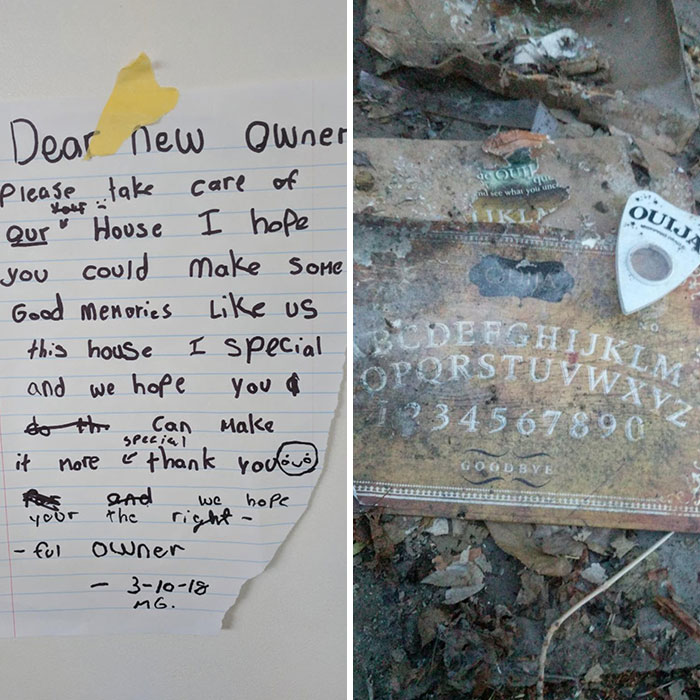 Dear new owner
Please take care of
your
our House I hope
you could make some
Good memories Like us
this house I special
and we hope you
do th Can make
special
it more thank you
and we hope
your the right -
- ful owner
- 3-10-18
MG.
OUIJ
nd see what you unc
IJKLM
OUIJA
BCDEFGHIJKLM
OPQRSTUVWXYZ
1234567890
GOODBYE